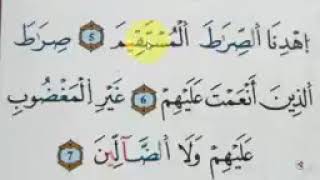 اِهْدِنَا الصِّرَاطَ الْمُسْتَقِيمَ ﴿5﴾ صِرَاطَ
الَّذِينَ أَنْعَمْتَ عَلَيْهِمْ ﴿6﴾ غَيْرِ الْمَغْضُوبِ
عَلَيْهِمْ وَلَا الضَّآلِّينَ ﴿7﴾